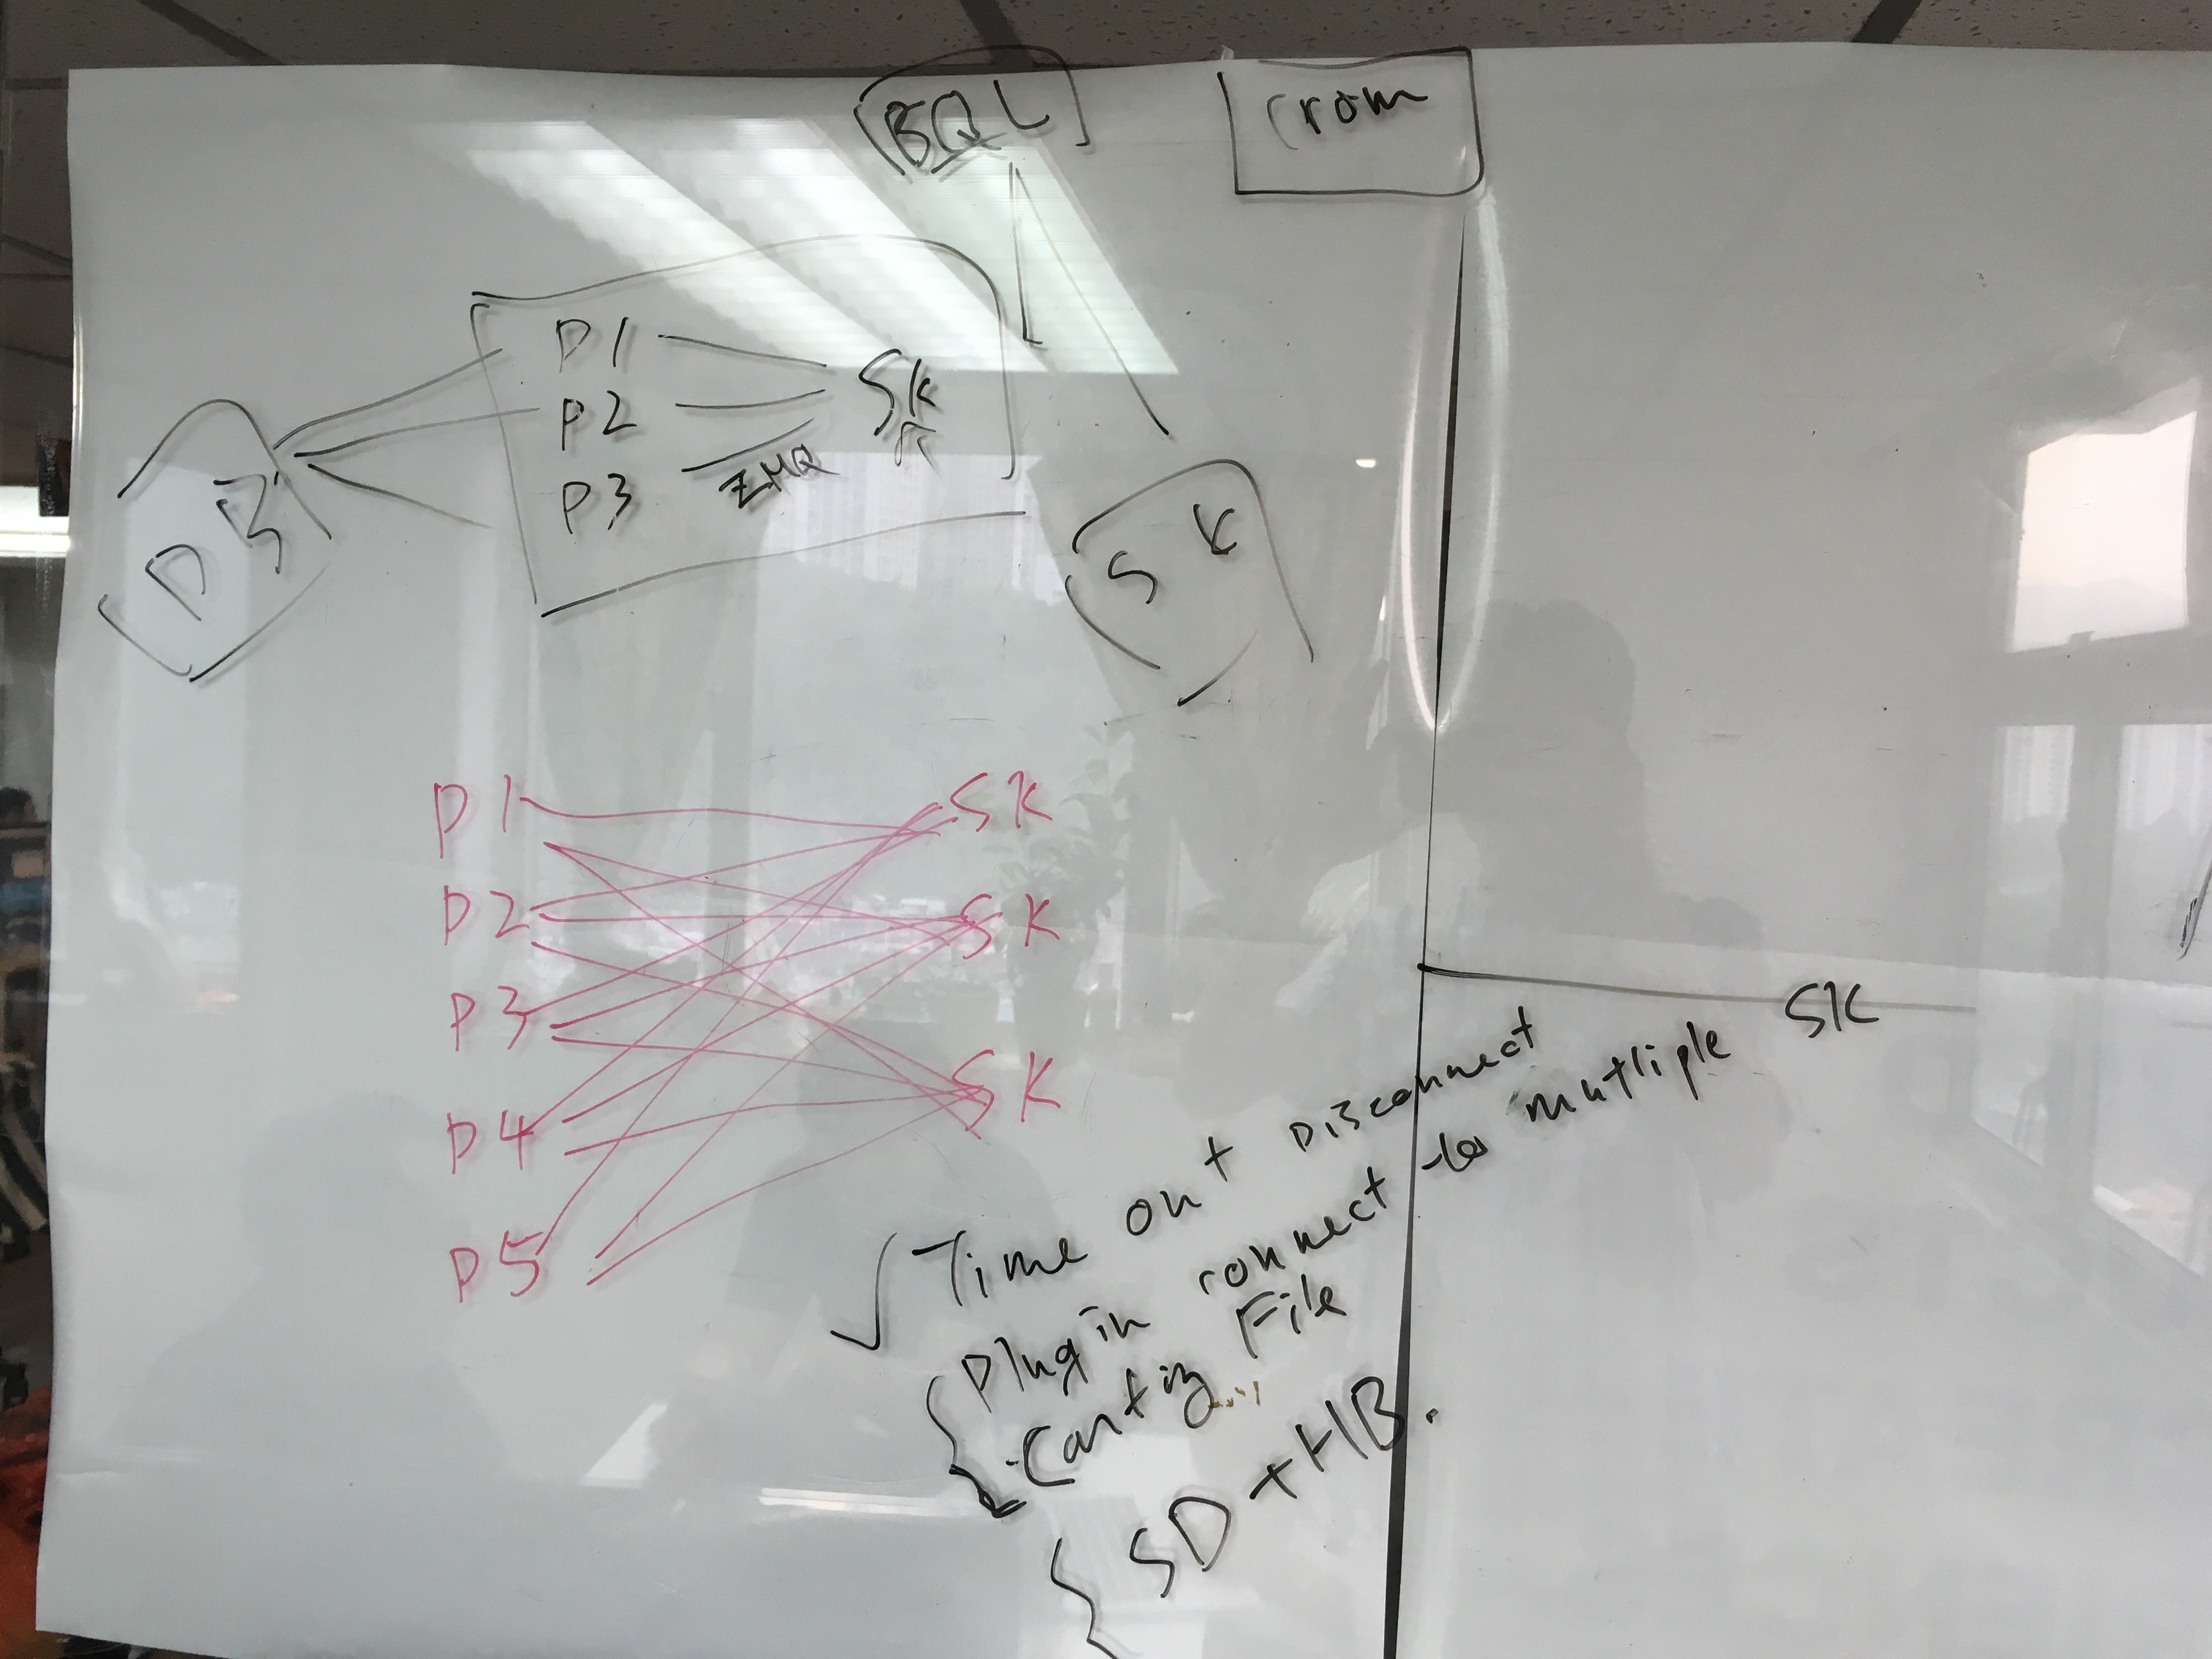 BQL
crom
P1
P2
P3
SK
ZMQ
DB
SK
P1 SK
P2 SK
P3
P4 SK
P5
Time out Disconnect
Plugin connect to mutliple SK
Config File
SD + HB.